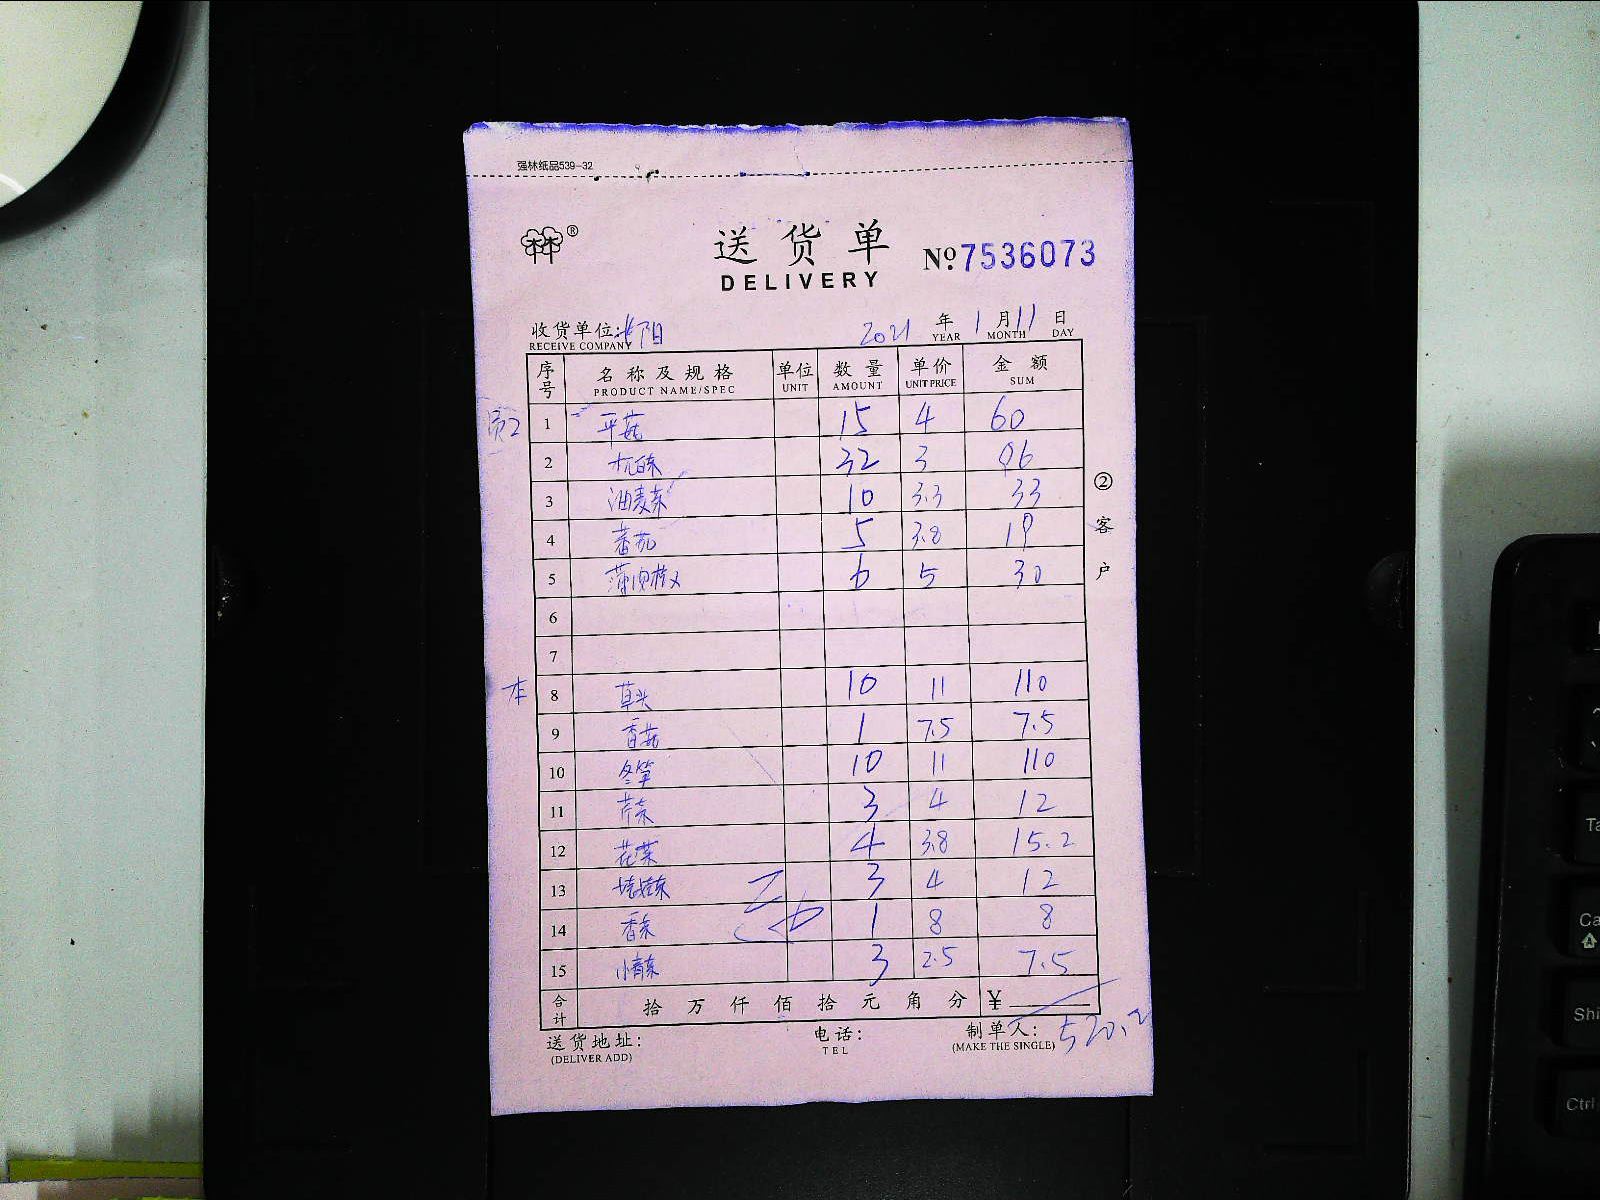 强林纸品539-32
® 送货单 №7536073
DELIVERY
收货单位: 2021 年 1 月 11 日
RECEIVE COMPANY YEAR MONTH DAY
序号 名称及规格 单位 数量 单价 金额
PRODUCT NAME/SPEC UNIT AMOUNT UNIT PRICE SUM
1 平菇 15 4 60
2 杭白菜 32 3 96
3 油麦菜 10 3.3 33
4 番茄 5 3.8 19
5 6 5 30
6
7
本 8 草头 10 11 110
9 香菇 1 7.5 7.5
10 冬笋 10 11 110
11 芹菜 3 4 12
12 花菜 4 3.8 15.2
13 3 4 12
14 香菜 1 8 8
15 小青菜 3 2.5 7.5
合计 拾 万 仟 佰 拾 元 角 分 ¥
520.2
送货地址: 电话: 制单人:
(DELIVER ADD) TEL (MAKE THE SINGLE)
②客户
Ctrl